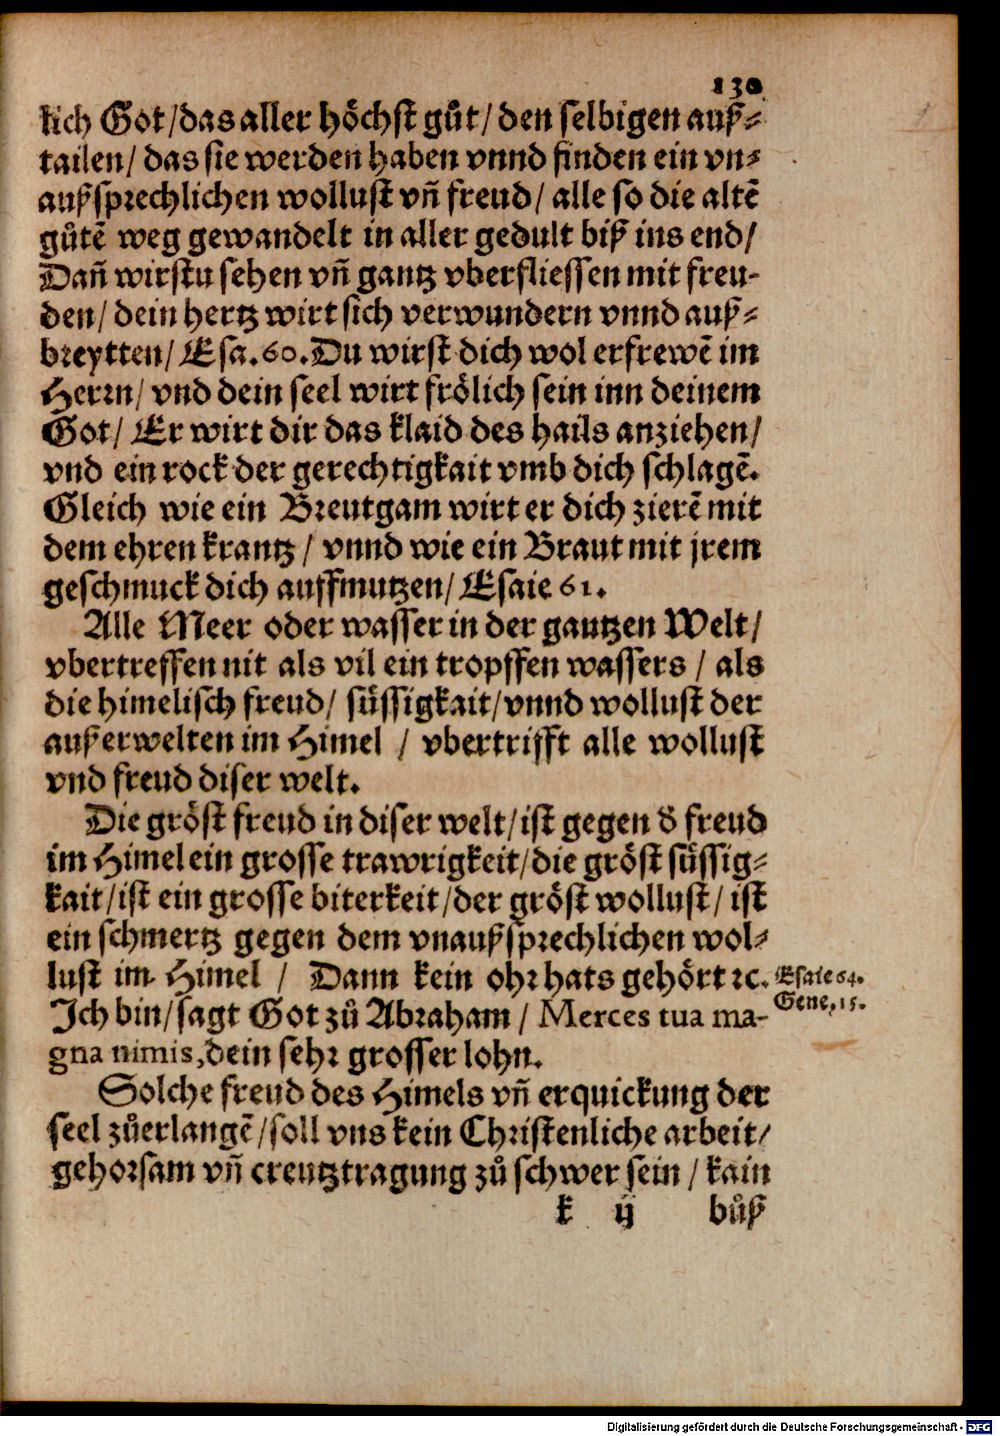 130
lich Got/das aller höchst gůt/ den selbigen auß⸗
tailen/ das sie werden haben vnnd finden ein vn⸗
außsprechlichen wollust vn̄ freud/ alle so die altē
gůtē weg gewandelt in aller gedult biß ins end/
Dan̄ wirstu sehen vn̄ gantz vberfliessen mit freu-
den/ dein hertz wirt sich verwundern vnnd auß⸗
breytten/ Esa.60.Du wirst dich wol erfrewē im
Herrn/ vnd dein seel wirt frölich sein inn deinem
Got/ Er wirt dir das klaid des hails anziehen/
vnd ein rock der gerechtigkait vmb dich schlagē.
Gleich wie ein Breutgam wirt er dich zierē mit
dem ehren krantz/ vnnd wie ein Braut mit jrem
geschmuck dich auffmutzen/ Esaie 61.
Alle Meer oder wasser in der gantzen Welt/
vbertreffen nit als vil ein tropffen wassers / als
die himelisch freud/ süssigkait/vnnd wollust der
außerwelten im Himel / vbertrifft alle wollust
vnd freud diser welt.
Die gröst freud in diser welt/ist gegen d freud
im Himel ein grosse trawrigkeit/die gröst süssig⸗
kait/ist ein grosse biterkeit/der gröst wollust/ ist
ein schmertz gegen dem vnaußsprechlichen wol⸗
lust im Himel / Dann kein ohr hats gehört ꝛc.
Esaie 64.
Gene,15.
Ich bin/sagt Got zů Abraham / Merces tua ma-
gna nimis,dein sehr grosser lohn.
Solche freud des Himels vn̄ erquickung der
seel zůerlangē/soll vns kein Christenliche arbeit/
gehorsam vn̄ creutztragung zů schwer sein / kain
k ij bůß
Digitalisierung gefördert durch die Deutsche Forschungsgemeinschaft - DFG